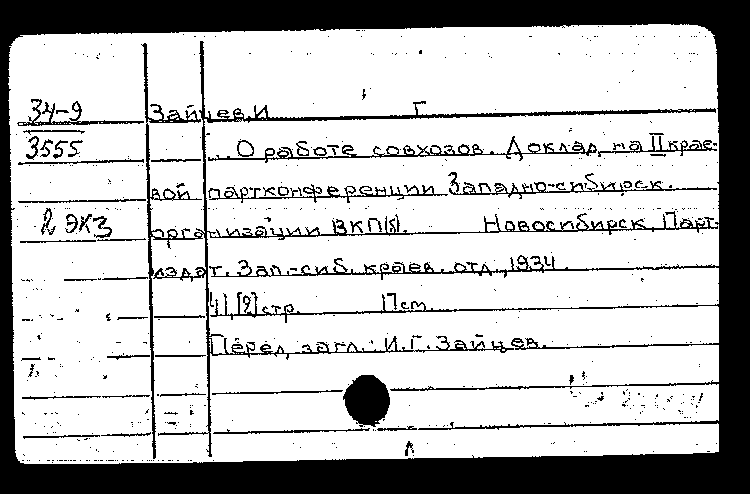 34-9 Зайцев, И Г
3555 ...О работе совхозов. Доклад на II крае-
вой партконференции Западно-сибирск.
2 экз организации ВКП(б). Новосибирск, Парт-
издат. Зап.-сиб. краев. отд., 1934.
41, [2] стр. 17 ст.
Перед загл.: И.Г. Зайцев.